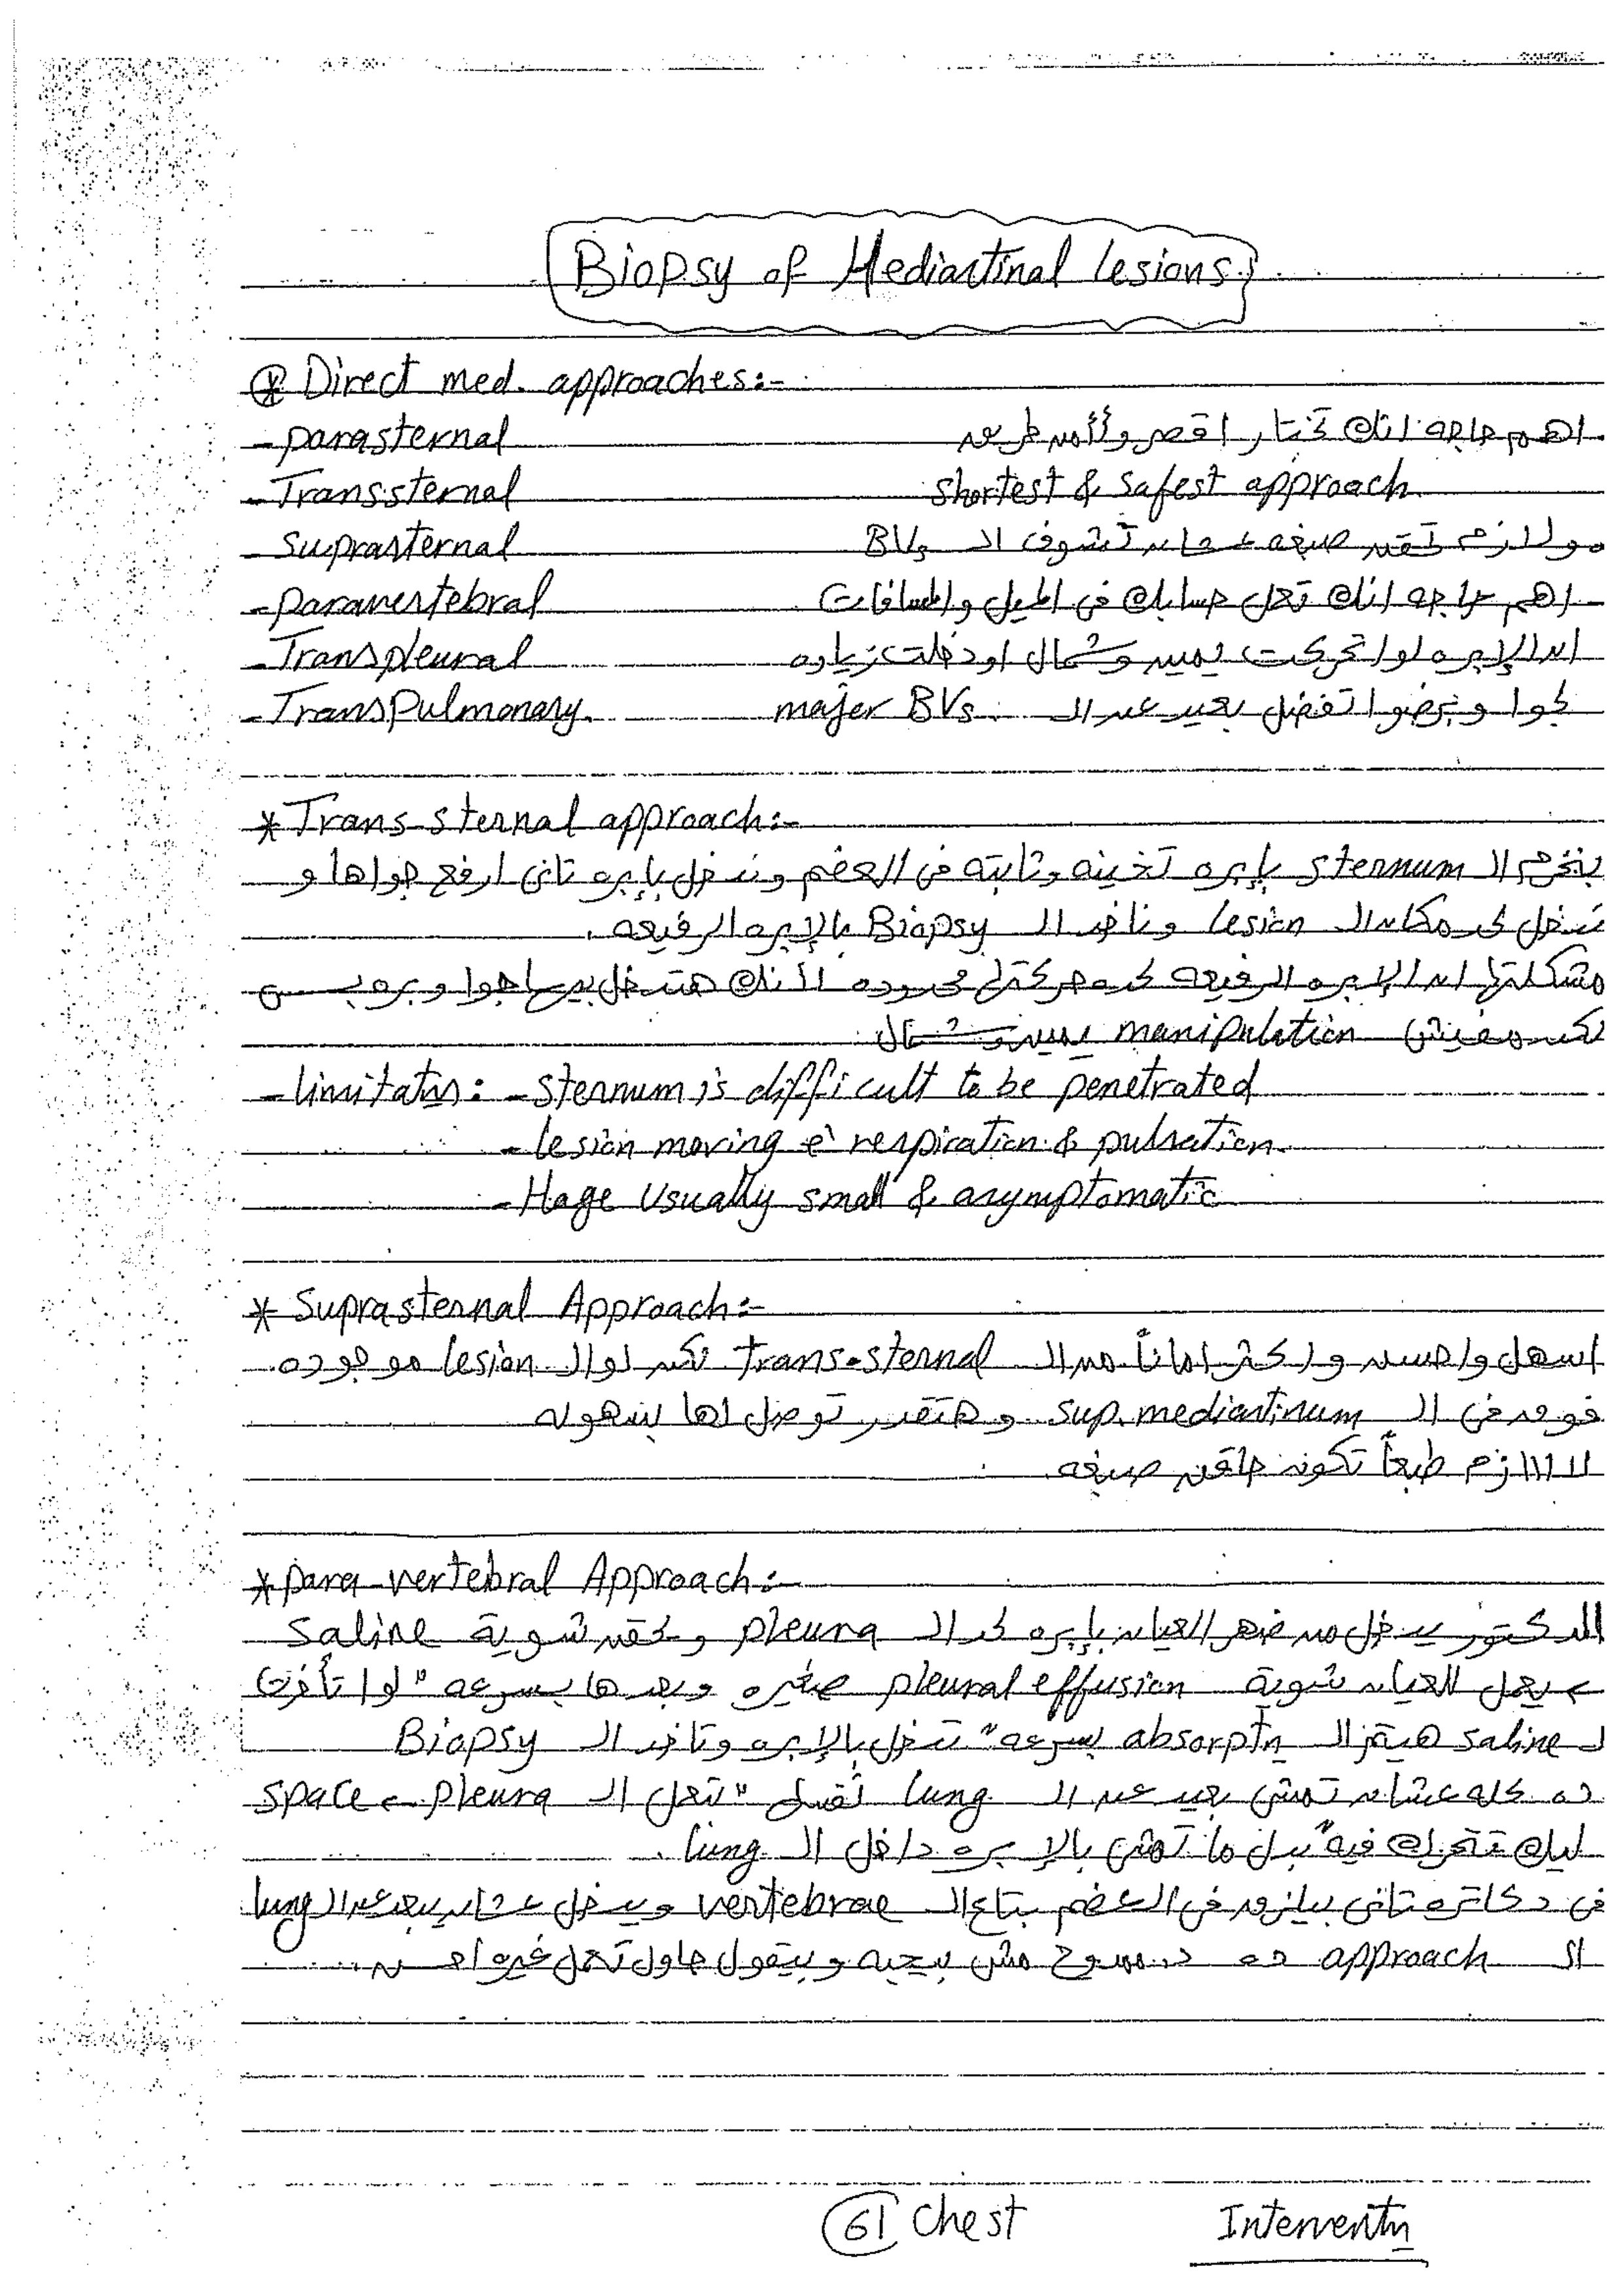 Biopsy of Mediastinal lesions
* Direct med. approaches:-
- parasternal اهم حاجه انك تختار اقصر وأأمن طريقه
- Transsternal shortest & safest approach
- Suprasternal ولازم تحقن صبغه عشان تشوف ال BVs
- paravertebral - اهم حاجه انك تعمل حسابك فى الميل والمسافات
- Transpleural ان الإبره لو اتحركت يمين وشمال او دخلت زياده
- Transpulmonary جوا وبرضوا تفضل بعيد عن ال major BVs
* Trans-sternal approach:-
بنخرم ال sternum بإبره تخينه وثابته فى العضم وندخل بإبره تانى ارفع جواها و
ندخل لحد مكان ال lesion وناخد ال Biopsy بالإبره الرفيعه .
مشكلتها ان الإبره الرفيعه حركتها محدوده لأنك هتدخل بيها جوا وبره بس
لكن مفيش manipulation يمين وشمال
- limitatn: - Sternum is difficult to be penetrated
- lesion moving e` respiration & pulsation
- Hage usually small & asymptomatic
* Suprasternal Approach:-
اسهل واحسن واكثر اماناً من ال Trans-sternal لكن لو ال lesion موجوده
فوق فى ال sup. mediastinum وهتقدر توصل لها بسهوله
لازم طبعاً تكون حاقن صبغه
* para-vertebral Approach:-
الدكتور بيدخل من ضهر العيان بإبره لحد ال pleura ويحقن شوية saline
يعمل للعيان شوية pleural effusion صغيره وبعدها بسرعه " لو اتأخرت
ال saline هيتمزال absorptn بسرعه " تدخل بالإبره وتاخد ال Biopsy
ده كله عشان تمشى بعيد عن ال lung " تعمل ال pleura space
ليك تتحرك فيه " بدل ما تمشى بالإبره داخل ال lung .
فى دكاتره تانى بيلزق فى العضم بتاع ال vertebrae ويدخل عشان يبعد عن ال lung
ال approach ده د. ممدوح مش بيحبه وبيقول حاول تعمل غيره احسن
61 Chest Interventn